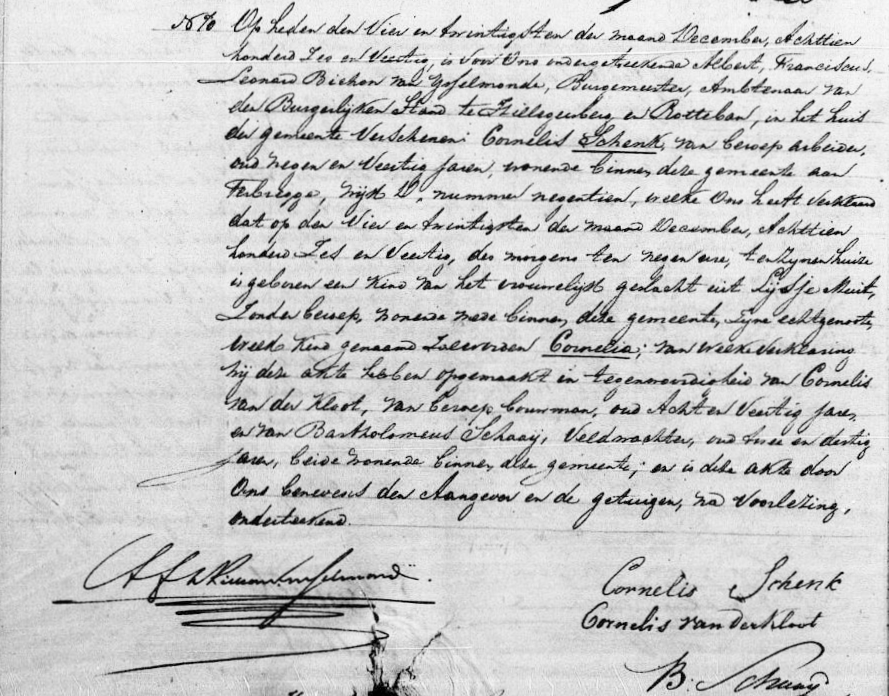 No 70 Op heden den Vier en twintigsten der maand December, Achttien
honderd Zes en Veertig, is voor Ons ondergeteekende Albert, Franciscus,
Leonard Bichon van Ysselmonde, Burgemeester, Ambtenaar van
den Burgerlijken Stand te Hillegersberg en Rotteban, in het huis
der gemeente Verschenen: Cornelis Schenk, van beroep arbeider,
oud negen en Veertig jaren, wonende binnen deze gemeente aan
Terbregge, wijk D, nummer negentien, welke Ons heeft Verklaard
dat op den Vier en twintigsten der maand December, Achttien
honderd Zes en Veertig, des morgens ten negen ure, ten zynen huize
is geboren een Kind van het vrouwelijk geslacht uit Lijsje Muit,
Zonder beroep, wonende mede binnen deze gemeente, zyne echtgenoote,
welk Kind genaamd Zal worden Cornelia; van welke Verklaring
wij deze akte hebben opgemaakt in tegenwoordigheid van Cornelis
van der Kloot, van beroep bouwman, oud Acht en Veertig jaren,
en van Bartholomeus Schaaij, Veldwachter, oud twee en dertig
jaren, beide wonende binnen deze gemeente; en is deze akte door
Ons benevens den Aangever en de getuigen, na Voorlezing,
onderteekend.
Cornelis Schenk
Cornelis van der kloot
B. Schaaij